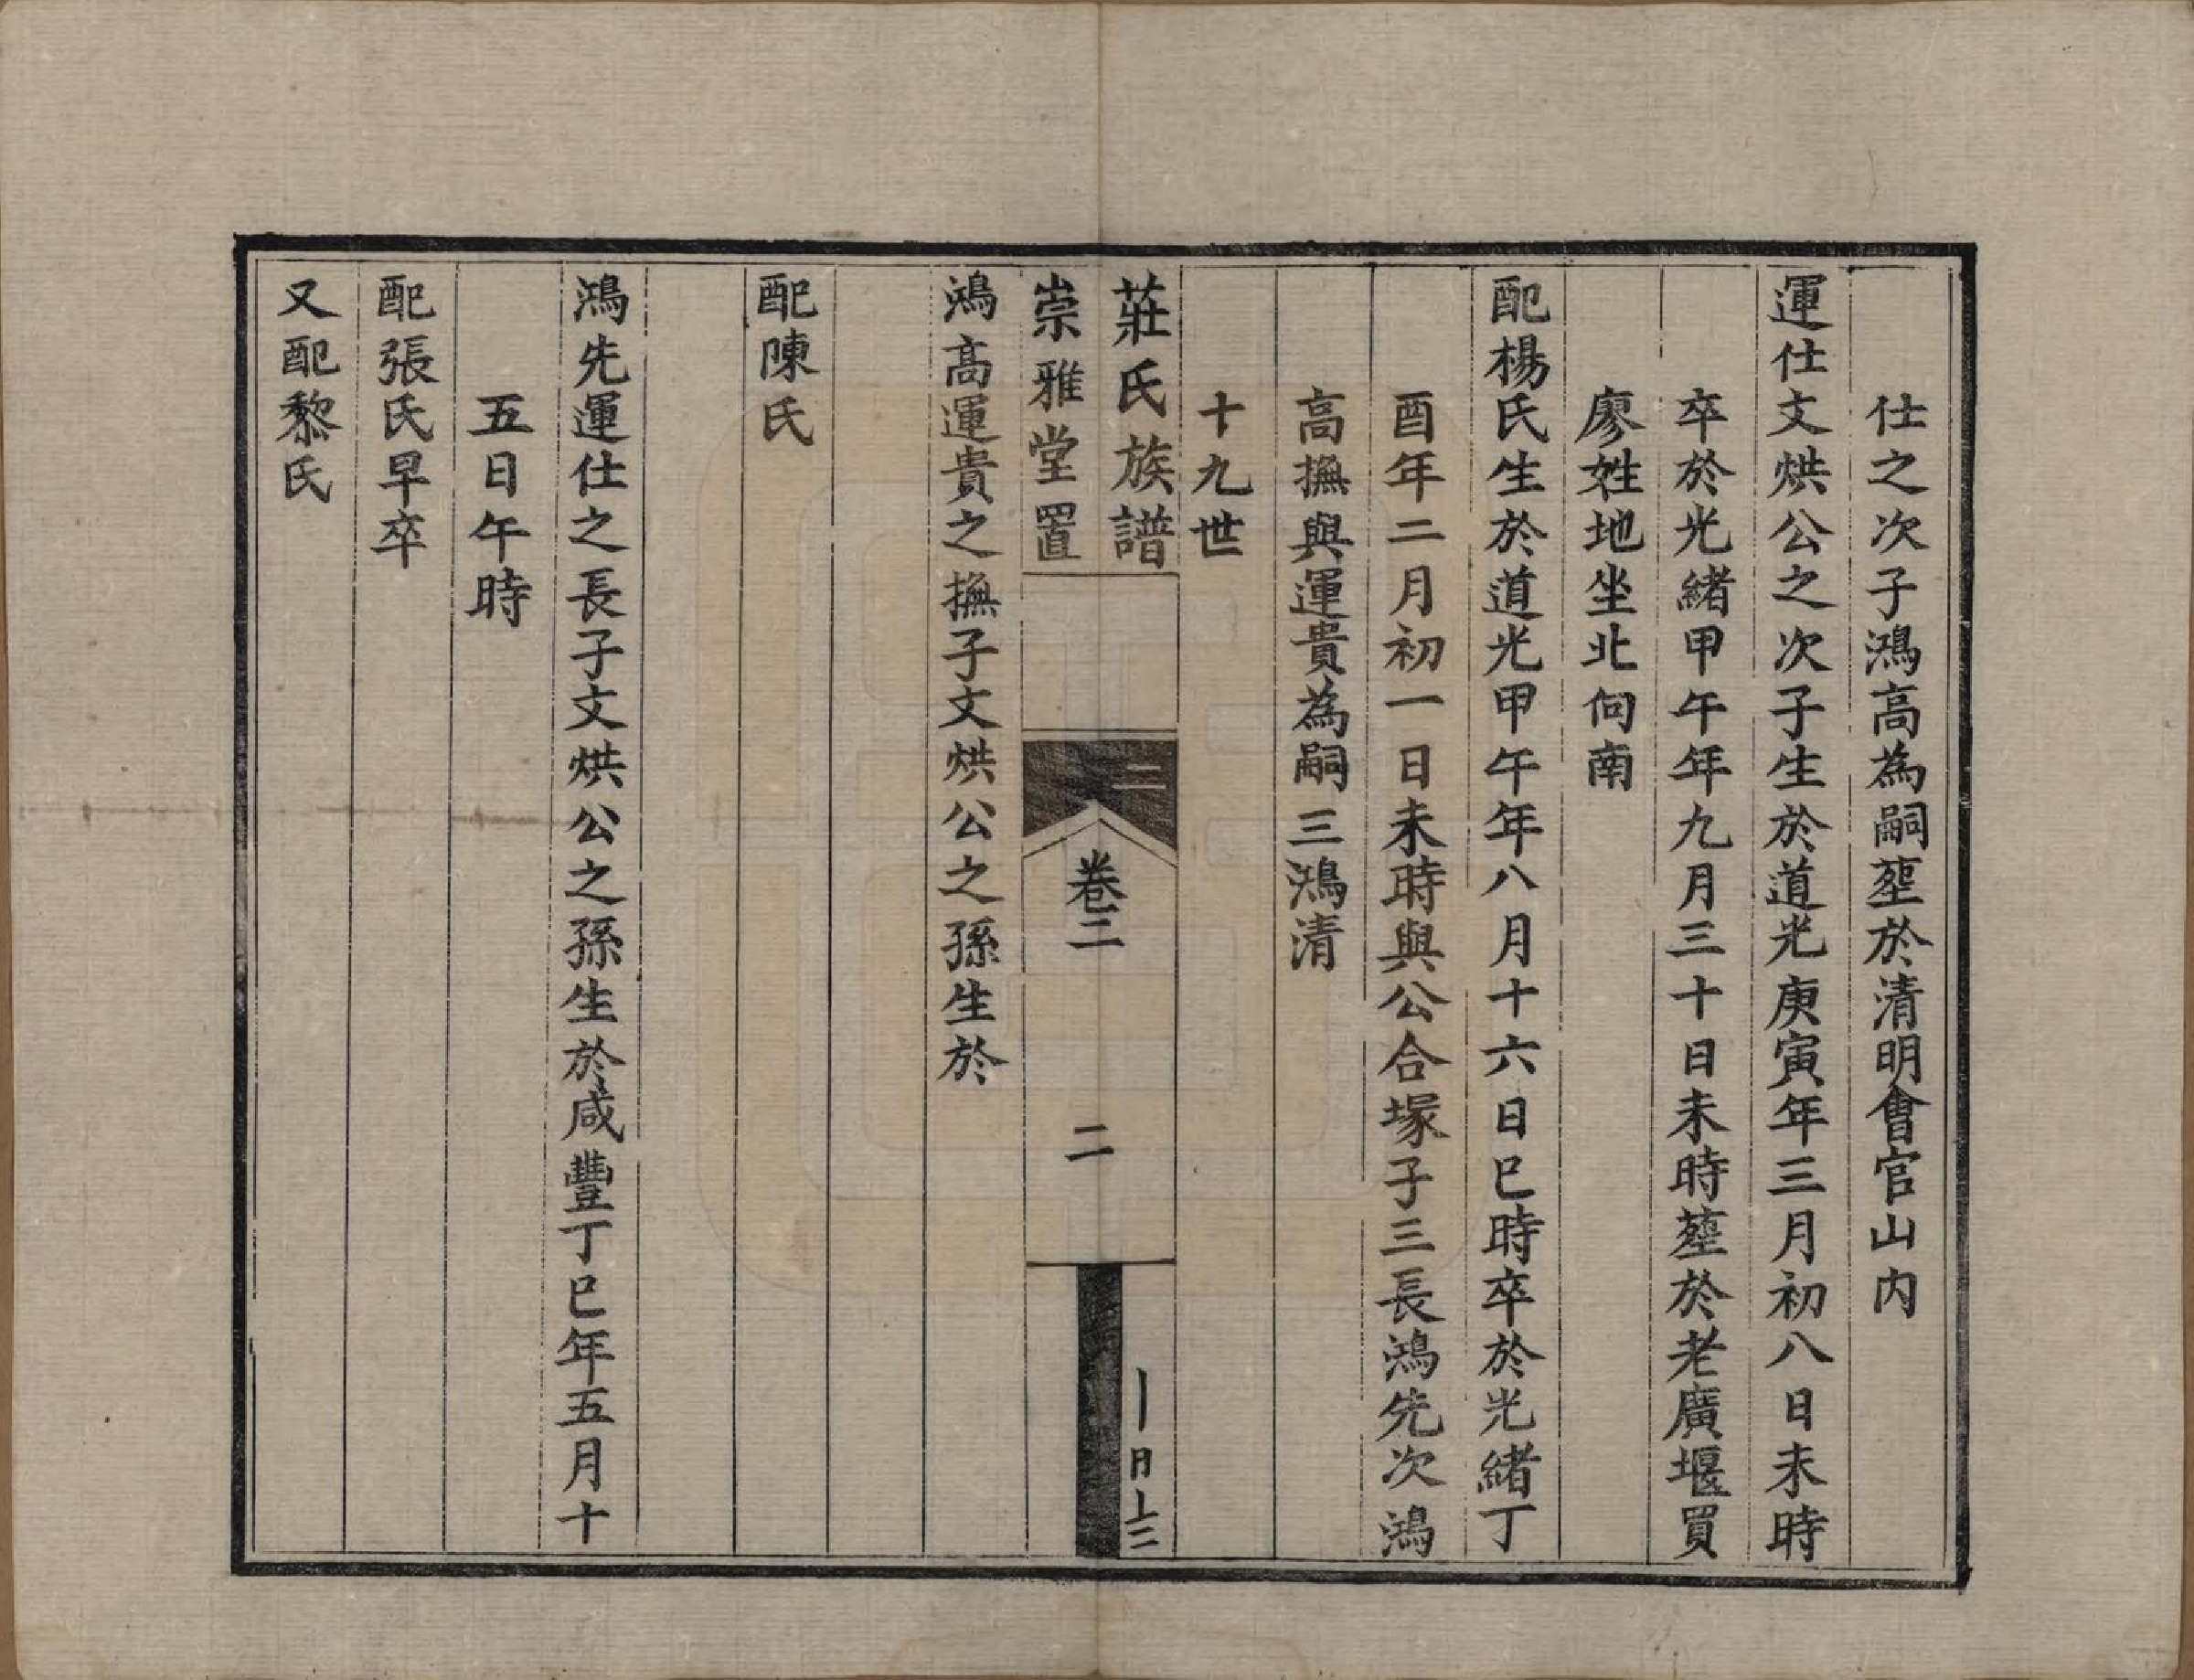 仕之次子鴻高為嗣塟於清明會官山内
運仕文烘公之次子生於道光庚寅年三月初八日未時
卒於光緒甲午年九月三十日未時塟於老廣堰買
廖姓地坐北向南
配楊氏生於道光甲午年八月十六日巳時卒於光緒丁
酉年二月初一日未時與公合塚子三長鴻先次鴻
高撫與運貴為嗣三鴻清
十九世
莊氏族譜
二
卷二
二
崇雅堂置
鴻高運貴之撫子文烘公之孫生於
配陳氏
鴻先運仕之長子文烘公之孫生於咸豐丁巳年五月十
五日午時
配張氏早卒
又配黎氏